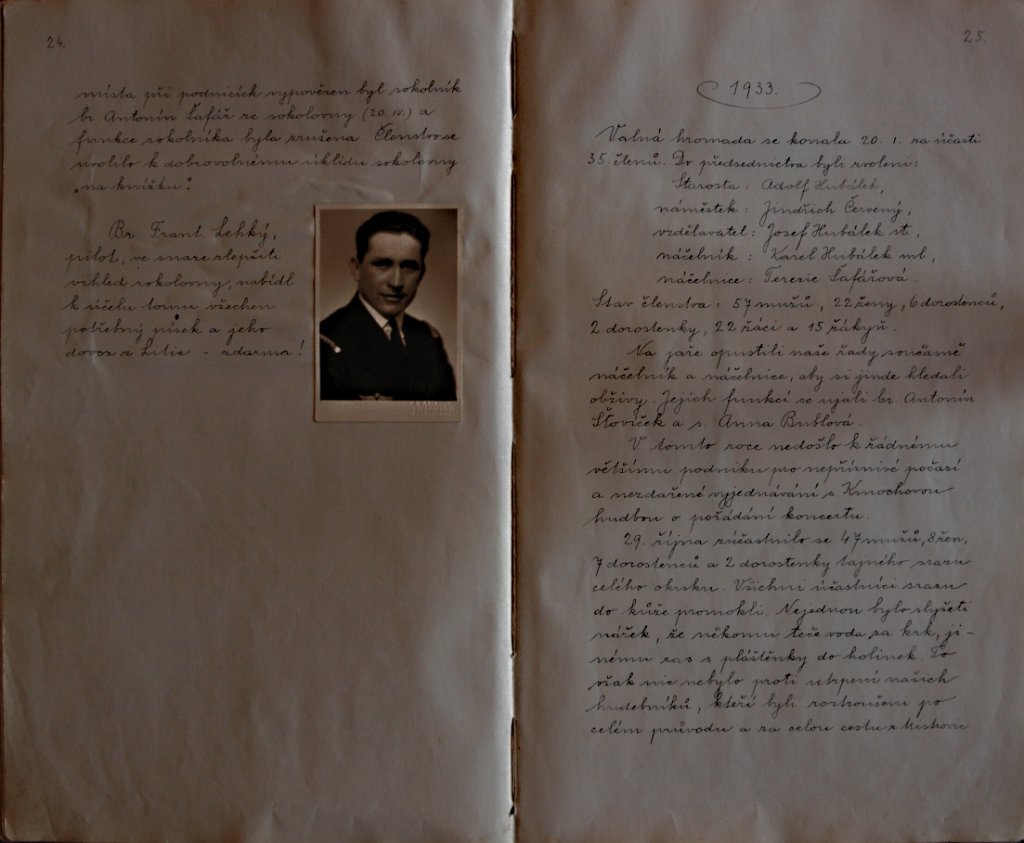 24.
místa při podnicích vypovězen byl sokolník
br. Antonín Šafář ze sokolovny (20. IV.) a
funkce sokolníka byla zrušena. Členstvo se
uvolilo k dobrovolnému úklidu sokolovny
„na knížku“.
Br. Frant. Lehký,
pilot, ve snaze zlepšiti
vzhled sokolovny, nabídl
k účelu tomu všechen
potřebný písek a jeho
dovoz z Litic - zdarma!
25.
1933.
Valná hromada se konala 20. 1. za účasti
35. členů. Do předsednictva byli zvoleni:
Starosta: Adolf Hubálek,
náměstek: Jindřich Červený,
vzdělavatel: Josef Hubálek st.,
náčelník: Karel Hubálek ml.,
náčelnice: Terezie Šafářová.
Stav členstva: 57 mužů, 22 ženy, 6 dorostenců,
2 dorostenky, 22 žáci a 15 žákyň.
Na jaře opustili naše řady současně
náčelník a náčelnice, aby si jinde hledali
obživy. Jejich funkcí se ujali br. Antonín
Šťovíček a s. Anna Bublová.
V tomto roce nedošlo k žádnému
většímu podniku pro nepříznivé počasí
a nezdařené vyjednávání s Kmochovou
hudbou o pořádání koncertu.
29. října zúčastnilo se 47 mužů, 8 žen,
7 dorostenců a 2 dorostenky tajného srazu
celého okrsku. Všichni účastníci srazu
do kůže promokli. Nejednou bylo slyšeti
nářek, že někomu teče voda za krk, ji-
nému zas s pláštěnky do holínek. To
však nic nebylo proti utrpení našich
hudebníků, kteří byli rozhořšeni po
celém průvodu a za celou cestu z Miskovic